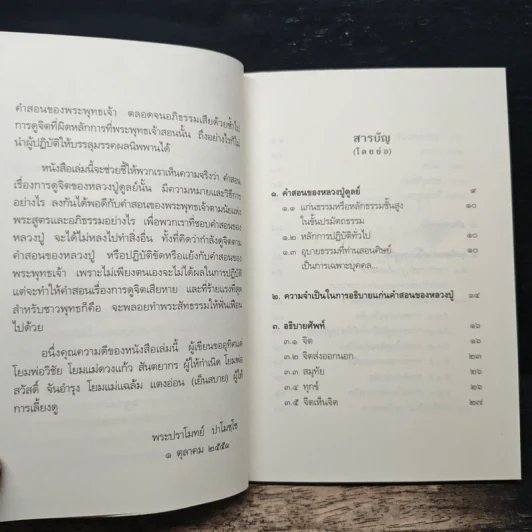 คำสอนของพระพุทธเจ้า ตลอดจนอภิธรรมเสียด้วยซ้ำไป
การดูจิตที่ผิดหลักการที่พระพุทธเจ้าสอนนั้น ถึงอย่างไรก็ไม่
นำผู้ปฏิบัติให้บรรลุมรรคผลนิพพานได้
หนังสือเล่มนี้จะช่วยชี้ให้พวกเราเห็นความจริงว่า คำสอน
เรื่องการดูจิตของหลวงปู่ดูลย์นั้น มีความหมายและวิธีการ
อย่างไร ลงกันได้พอดีกับคำสอนของพระพุทธเจ้าตามนัยแห่ง
พระสูตรและอภิธรรมอย่างไร เพื่อพวกเราที่ชอบคำสอนของ
หลวงปู่ จะได้ไม่หลงไปทำสิ่งอื่น ทั้งที่คิดว่ากำลังดูจิตตาม
คำสอนของหลวงปู่ หรือปฏิบัติขัดหรือแย้งกับคำสอนของ
พระพุทธเจ้า เพราะไม่เพียงตนเองจะไม่ได้ผลในการปฏิบัติ
แต่จะทำให้คำสอนเรื่องการดูจิตเสียหาย และที่ร้ายแรงที่สุด
สำหรับชาวพุทธก็คือ จะพลอยทำพระสัทธรรมให้ฟั่นเฟือน
ไปด้วย
อนึ่งคุณความดีของหนังสือเล่มนี้ ผู้เขียนขออุทิศแด่
โยมพ่อวิชัย โยมแม่ดวงแก้ว สันตยากร ผู้ให้กำเนิด โยมพ่อ
สวัสดิ์ จันอำรุง โยมแม่แฉล้ม แตงอ่อน (เย็นสบาย) ผู้ให้
การเลี้ยงดู
พระปราโมทย์ ปาโมชฺโช
๑ ตุลาคม ๒๕๕๑
สารบัญ
(โดยย่อ)
๑. คำสอนของหลวงปู่ดูลย์ ๙
๑.๑ แก่นธรรมหรือหลักธรรมชั้นสูง ๑๐
ในชั้นปรมัตถธรรม
๑.๒ หลักการปฏิบัติทั่วไป ๑๐
๑.๓ อุบายธรรมที่ท่านสอนศิษย์ ๑๐
เป็นการเฉพาะบุคคล...
๒. ความจำเป็นในการอธิบายแก่นคำสอนของหลวงปู่ ๑๔
๓. อธิบายศัพท์ ๑๖
๓.๑ จิต ๑๖
๓.๒ จิตส่งออกนอก ๒๓
๓.๓ สมุทัย ๒๖
๓.๔ ทุกข์ ๒๖
๓.๕ จิตเห็นจิต ๒๗